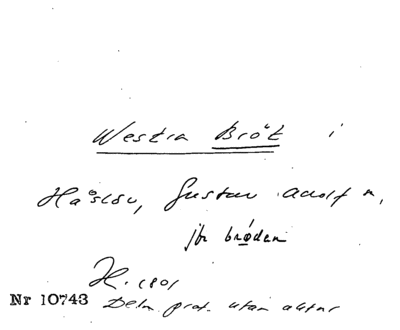 Westra Bröt i
Håslöv, Gustav Adolf n,
jfr bröden
H. 1801
Nr 10743 Deln. prot. utan aktnr